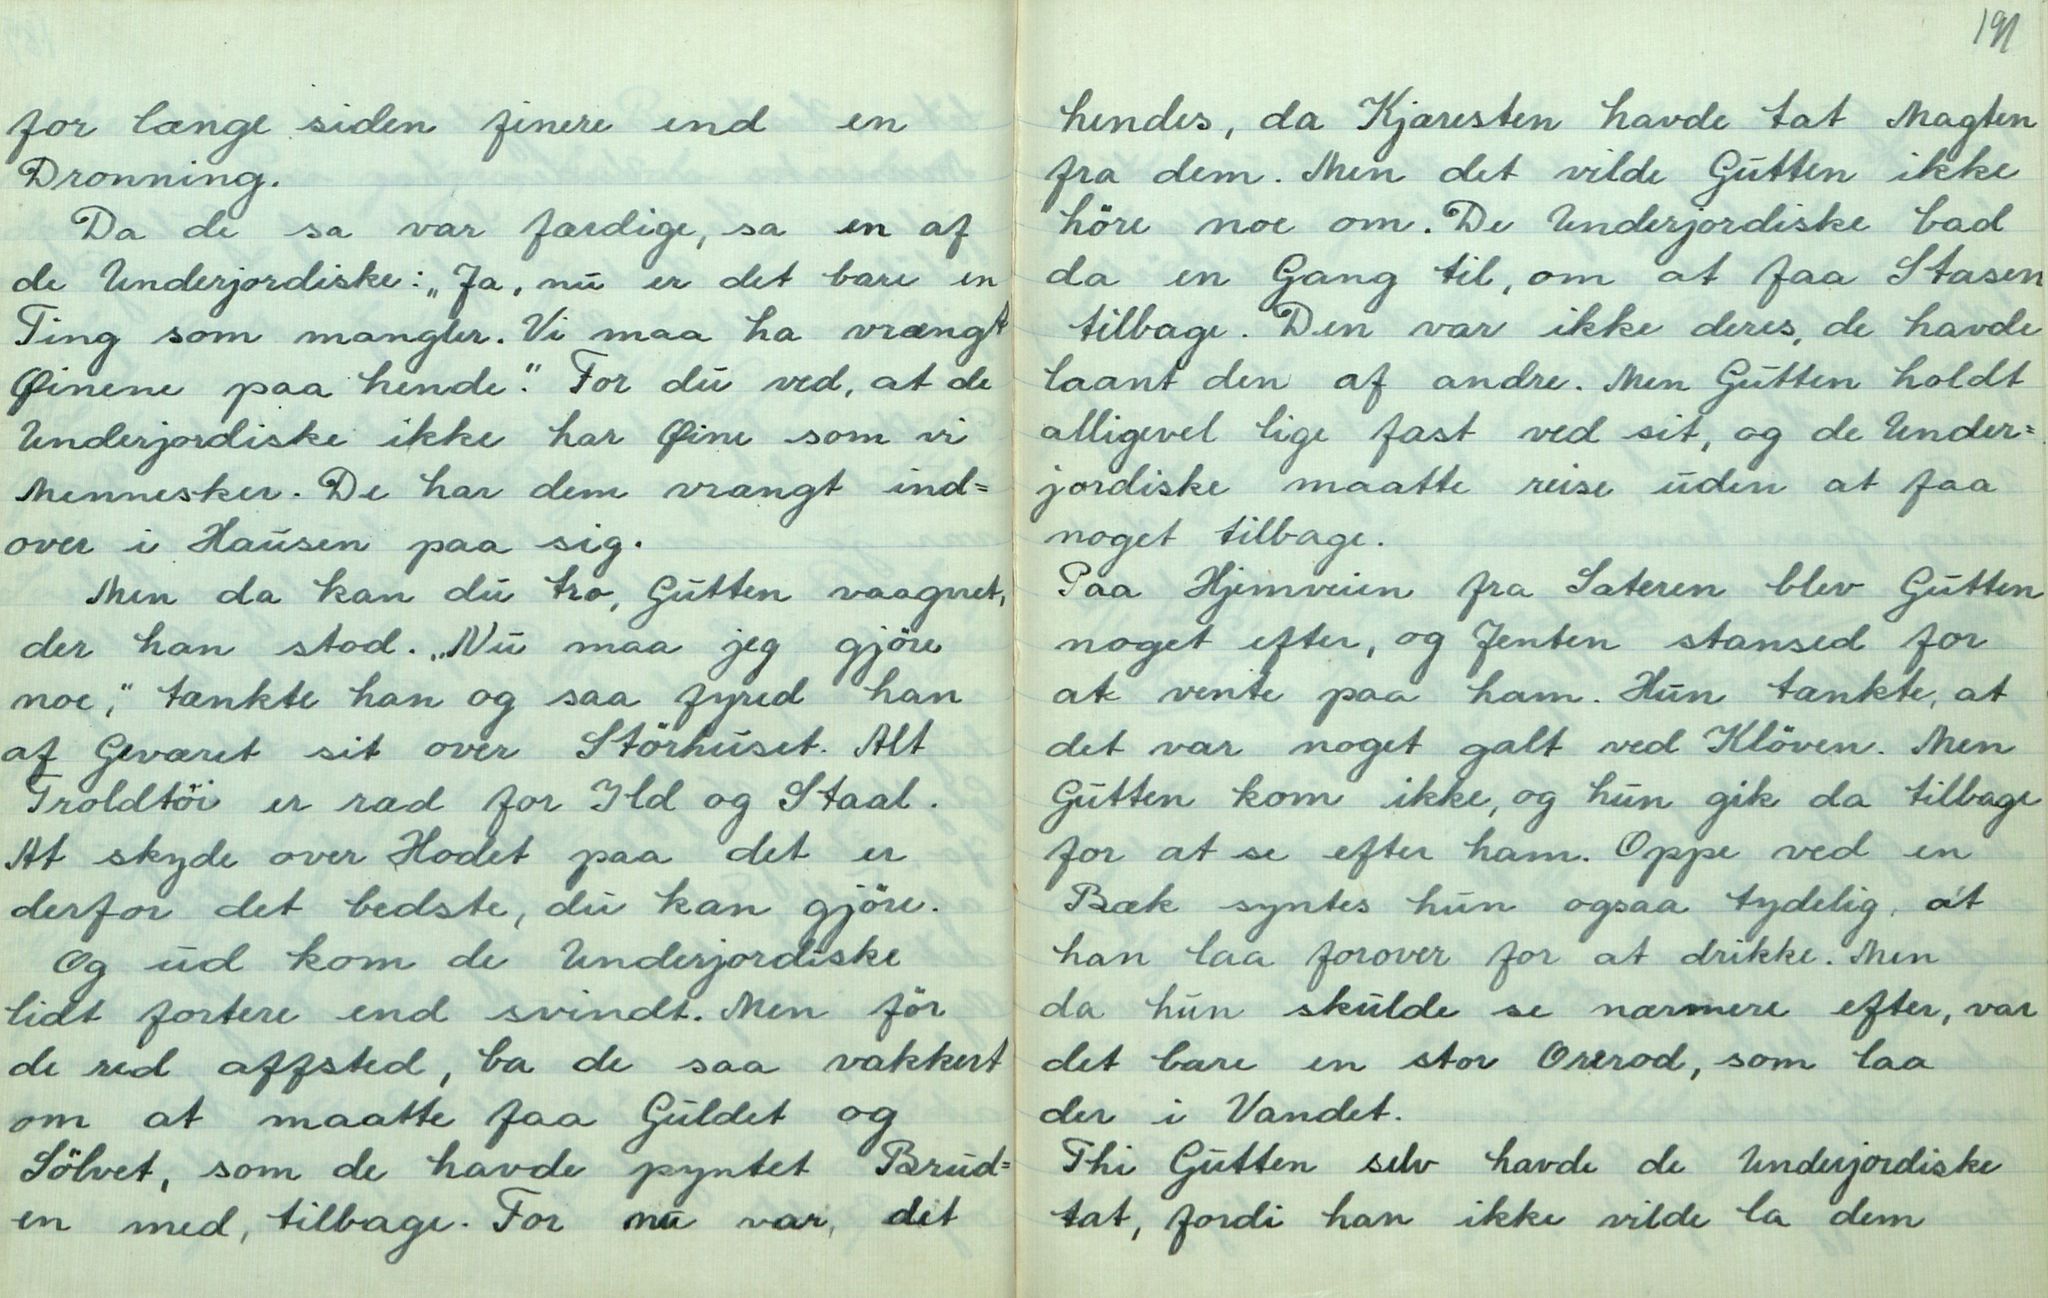 for længe siden finere end en
Dronning.
Da de sa var færdige, sa en af
de Underjordiske: „Ja, nu er det bare en
Ting som mangler. Vi maa ha vrængt
Øinene paa hende." For du ved, at de
Underjordiske ikke har Øine som vi
Mennesker. De har dem vrangt ind=
over i Hausen paa sig.
Men da kan du tro, Gutten vaagnet,
der han stod. „Nu maa jeg gjöre
noe," tænkte han og saa fyred han
af Geværet sit over Störhuset. Alt
Troldtöi er rad for Ild og Staal.
At skyde over Hodet paa det er
derfor det bedste, du kan gjöre.
Og ud kom de Underjordiske
lidt fortere end svindt. Men för
de red affsted, ba de saa vakkert
om at maatte faa Guldet og
Sölvet, som de havde pyntet Brud=
en med, tilbage. For nu var det
191
hendes, da Kjæresten havde tat Magten
fra dem. Men det vilde Gutten ikke
höre noe om. De Underjordiske bad
da en Gang til, om at faa Stasen
tilbage. Den var ikke deres, de havde
laant den af andre. Men Gutten holdt
alligevel lige fast ved sit, og de Under=
jordiske maatte reise uden at faa
noget tilbage.
Paa Hjemveien fra Sæteren blev Gutten
noget efter, og Jenten stansed for
at vente paa ham. Hun tænkte, at
det var noget galt ved Klöven. Men
Gutten kom ikke, og hun gik da tilbage
for at se efter ham. Oppe ved en
Bæk syntes hun ogsaa tydelig, at
han laa forover for at drikke. Men
da hun skulde se nærmere efter, var
det bare en stor Orerod, som laa
der i Vandet.
Thi Gutten selv havde de Underjordiske
tat, fordi han ikke vilde la dem